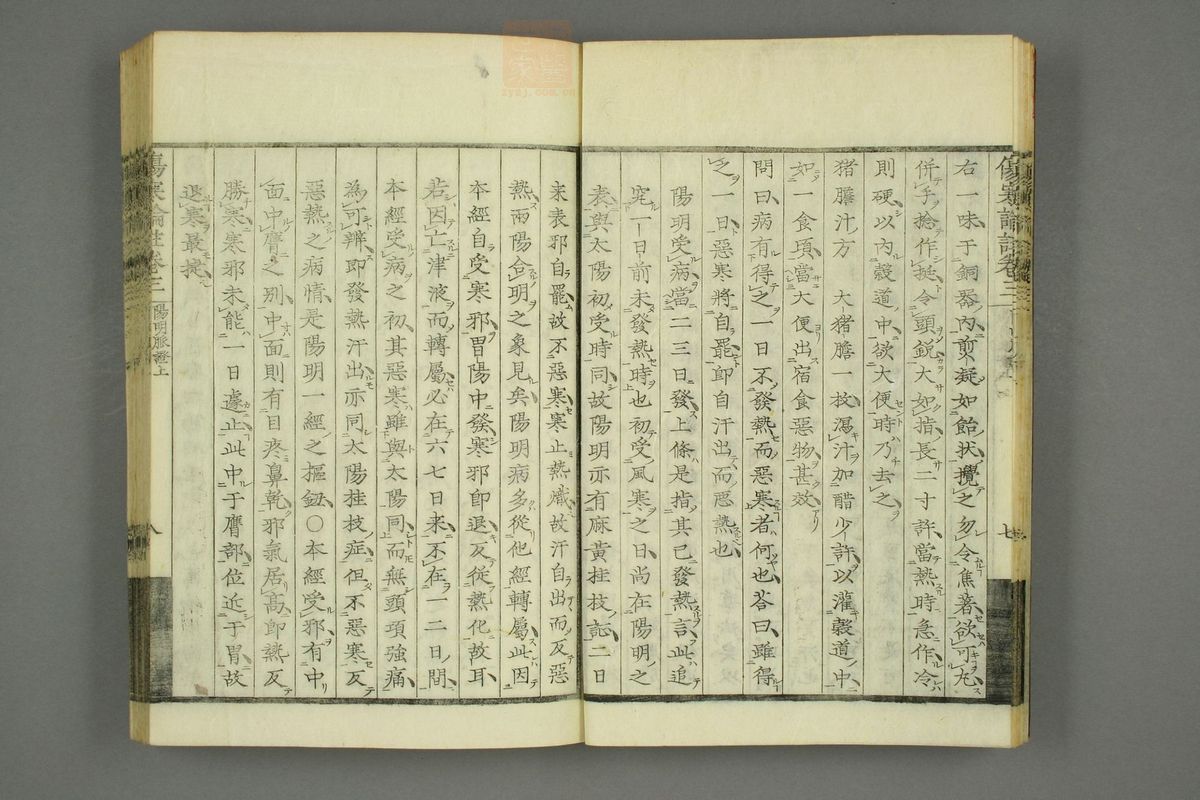 右一味于銅器内煎凝如飴狀攪之勿令焦著欲可丸
併手捻作挺令頭銳大如指長二寸許當熱時急作冷
則硬以内穀道中欲大便時乃去之
猪膽汁方 大猪膽一枚瀉汁加醋少許以灌穀道中
如一食頃當大便出宿食惡物甚效
問曰病有得之一日不發熱而惡寒者何也荅曰雖得
之一日惡寒將自罷卽自汗出而惡熱也
陽明受病當二三日發上條是指其已發熱言此追
究一日前未發熱時也初受風寒之日尚在陽明之
表與太陽初受時同故陽明亦有麻黃桂枝証二日
来表邪自罷故不惡寒寒止熱熾故汗自出而反惡
熱兩陽合明之象見矣陽明病多從他經轉屬此因
本經自受寒邪胃陽中發寒邪卽退反從熱化故耳
若因亡津液而轉屬必在六七日来不在一二日間
本經受病之初其惡寒雖與太陽同而無頭項強痛
為可辨即發熱汗出亦同太陽桂枝症但不惡寒反
惡熱之病情是陽明一經之樞鈕○本經受邪有中
面中膺之別中面則有目疼鼻乾邪氣居高卽熱反
勝寒寒邪未能一日遽止此中于膺部位近于胃故
退寒最捷
傷寒論註卷三
陽明脈證上
八
七
zysj.com.cn